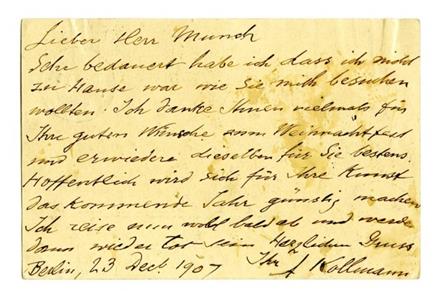 Lieber Herr Munch
Sehr bedauert habe ich dass ich nicht
zu Hause war wie Sie mich besuchen
wollten. Ich danke Ihnen vielmals für
Ihre guten Wünsche zum Weihnachtsfest
und erwiedere dieselben für Sie bestens.
Hoffentlich wird sich für Ihre Kunst
das kommende Jahr günstig machen
Ich reise nun wohl bald ab und werde
dann wieder tot sein Herzlichen Gruss
Berlin, 23 Dect 1907 Ihr A Kollmann